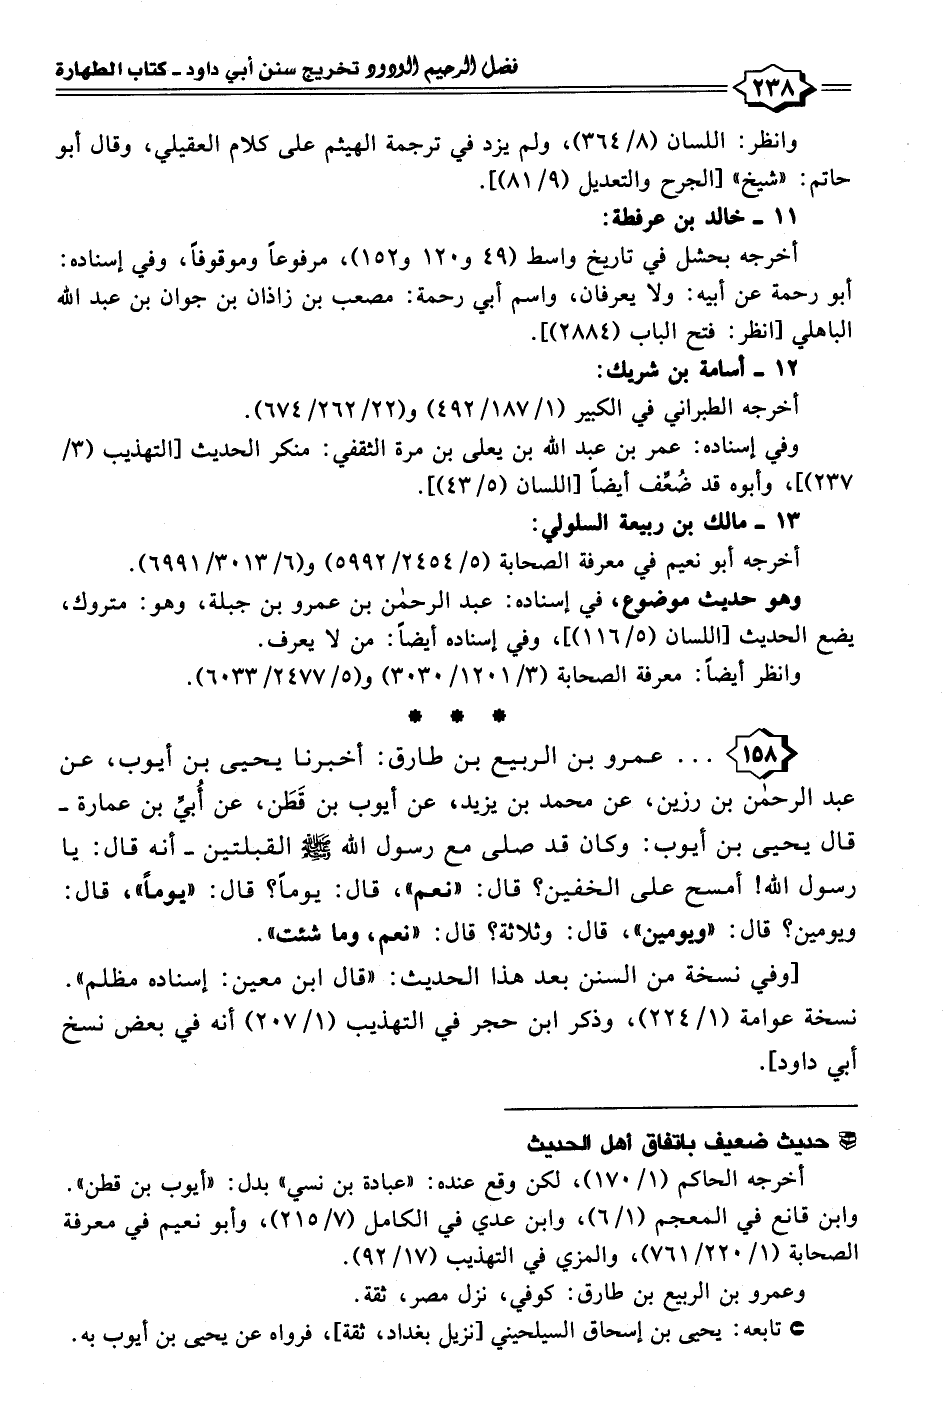 فضل الرحيم الودود تخريج سنن أبي داود ـ كتاب الطهارة
٢٣٨
وانظر: اللسان (٨/ ٣٦٤)، ولم يزد في ترجمة الهيثم على كلام العقيلي، وقال أبو
حاتم: «شيخ» [الجرح والتعديل (٩/ ٨١)].
١١ ـ خالد بن عرفطة:
أخرجه بحشل في تاريخ واسط (٤٩ و١٢٠ و١٥٢)، مرفوعاً وموقوفاً، وفي إسناده:
أبو رحمة عن أبيه: ولا يعرفان، واسم أبي رحمة: مصعب بن زاذان بن جوان بن عبد الله
الباهلي [انظر: فتح الباب (٢٨٨٤)].
١٢ ـ أسامة بن شريك:
أخرجه الطبراني في الكبير (١/ ١٨٧/ ٤٩٢) و(٢٢/ ٢٦٢/ ٦٧٤).
وفي إسناده: عمر بن عبد الله بن يعلى بن مرة الثقفي: منكر الحديث [التهذيب (٣/
٢٣٧)]، وأبوه قد ضُعِّف أيضاً [اللسان (٥/ ٤٣)].
١٣ ـ مالك بن ربيعة السلولي:
أخرجه أبو نعيم في معرفة الصحابة (٥/ ٢٤٥٤/ ٥٩٩٢) و(٦/ ٣٠١٣/ ٦٩٩١).
وهو حديث موضوع، في إسناده: عبد الرحمٰن بن عمرو بن جبلة، وهو: متروك،
يضع الحديث [اللسان (٥/ ١١٦)]، وفي إسناده أيضاً: من لا يعرف.
وانظر أيضاً: معرفة الصحابة (٣/ ١٢٠١/ ٣٠٣٠) و(٥/ ٢٤٧٧/ ٦٠٣٣).
* * *
١٥٨ ... عمرو بن الربيع بن طارق: أخبرنا يحيى بن أيوب، عن
عبد الرحمٰن بن رزين، عن محمد بن يزيد، عن أيوب بن قَطَن، عن أُبيِّ بن عمارة ـ
قال يحيى بن أيوب: وكان قد صلى مع رسول الله ﷺ القبلتين ـ أنه قال: يا
رسول الله! أمسح على الخفين؟ قال: «نعم»، قال: يوماً؟ قال: «يوماً»، قال:
ويومين؟ قال: «ويومين»، قال: وثلاثة؟ قال: «نعم، وما شئت».
[وفي نسخة من السنن بعد هذا الحديث: «قال ابن معين: إسناده مظلم».
نسخة عوامة (١/ ٢٢٤)، وذكر ابن حجر في التهذيب (١/ ٢٠٧) أنه في بعض نسخ
أبي داود].
حديث ضعيف باتفاق أهل الحديث
أخرجه الحاكم (١/ ١٧٠)، لكن وقع عنده: «عبادة بن نسي» بدل: «أيوب بن قطن».
وابن قانع في المعجم (١/ ٦)، وابن عدي في الكامل (٧/ ٢١٥)، وأبو نعيم في معرفة
الصحابة (١/ ٢٢٠/ ٧٦١)، والمزي في التهذيب (١٧/ ٩٢).
وعمرو بن الربيع بن طارق: كوفي، نزل مصر، ثقة.
تابعه: يحيى بن إسحاق السيلحيني [نزيل بغداد، ثقة]، فرواه عن يحيى بن أيوب به.